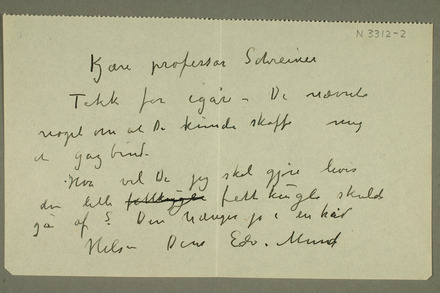 N 3312-2
Kjære professor Schreiner
Takk for igår – De nævnte
noget om at De kunde skaffe mig
et gazbind.
Hva vil De jeg skal gjøre hvis
den lille fettkugle skulde
gå af? Den hænger jo i en hår
Hilsen Deres Edv. Munch